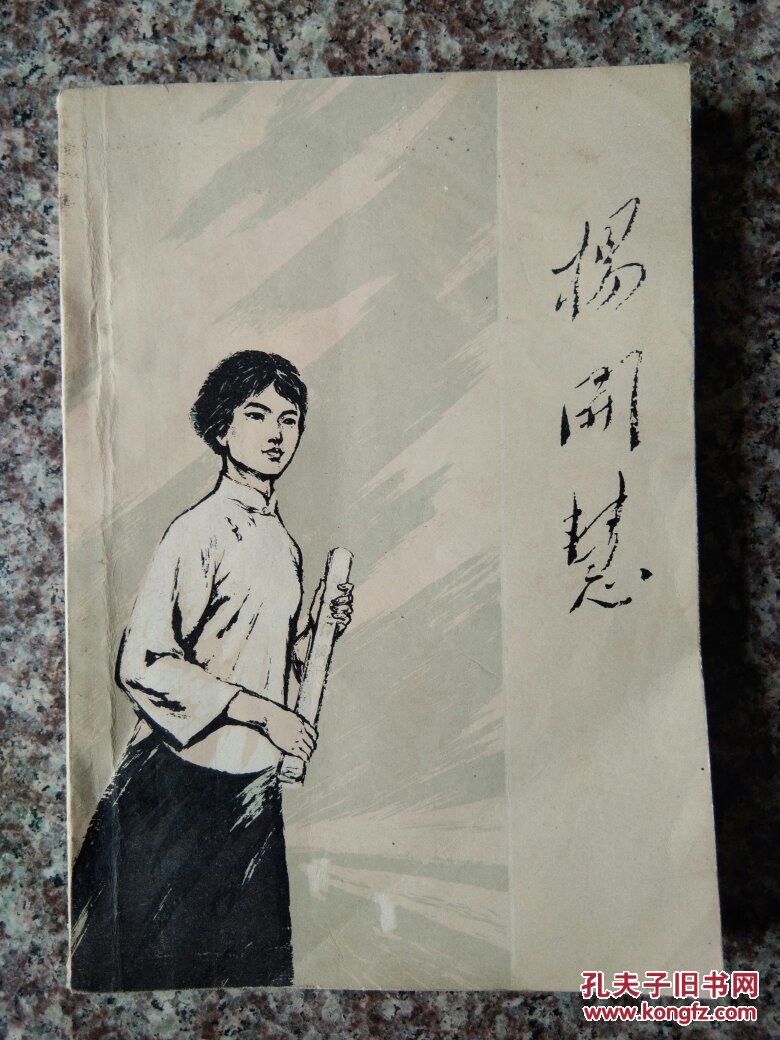 楊開慧
孔夫子旧书网
www.kongfz.com